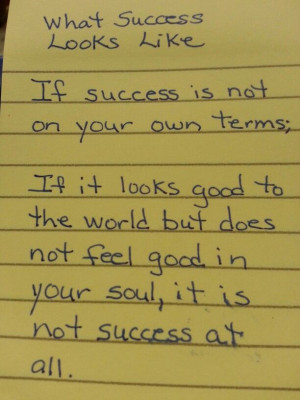 What Success
Looks Like
If success is not
on your own terms;
If it looks good to
the world but does
not feel good in
your soul, it is
not success at
all.